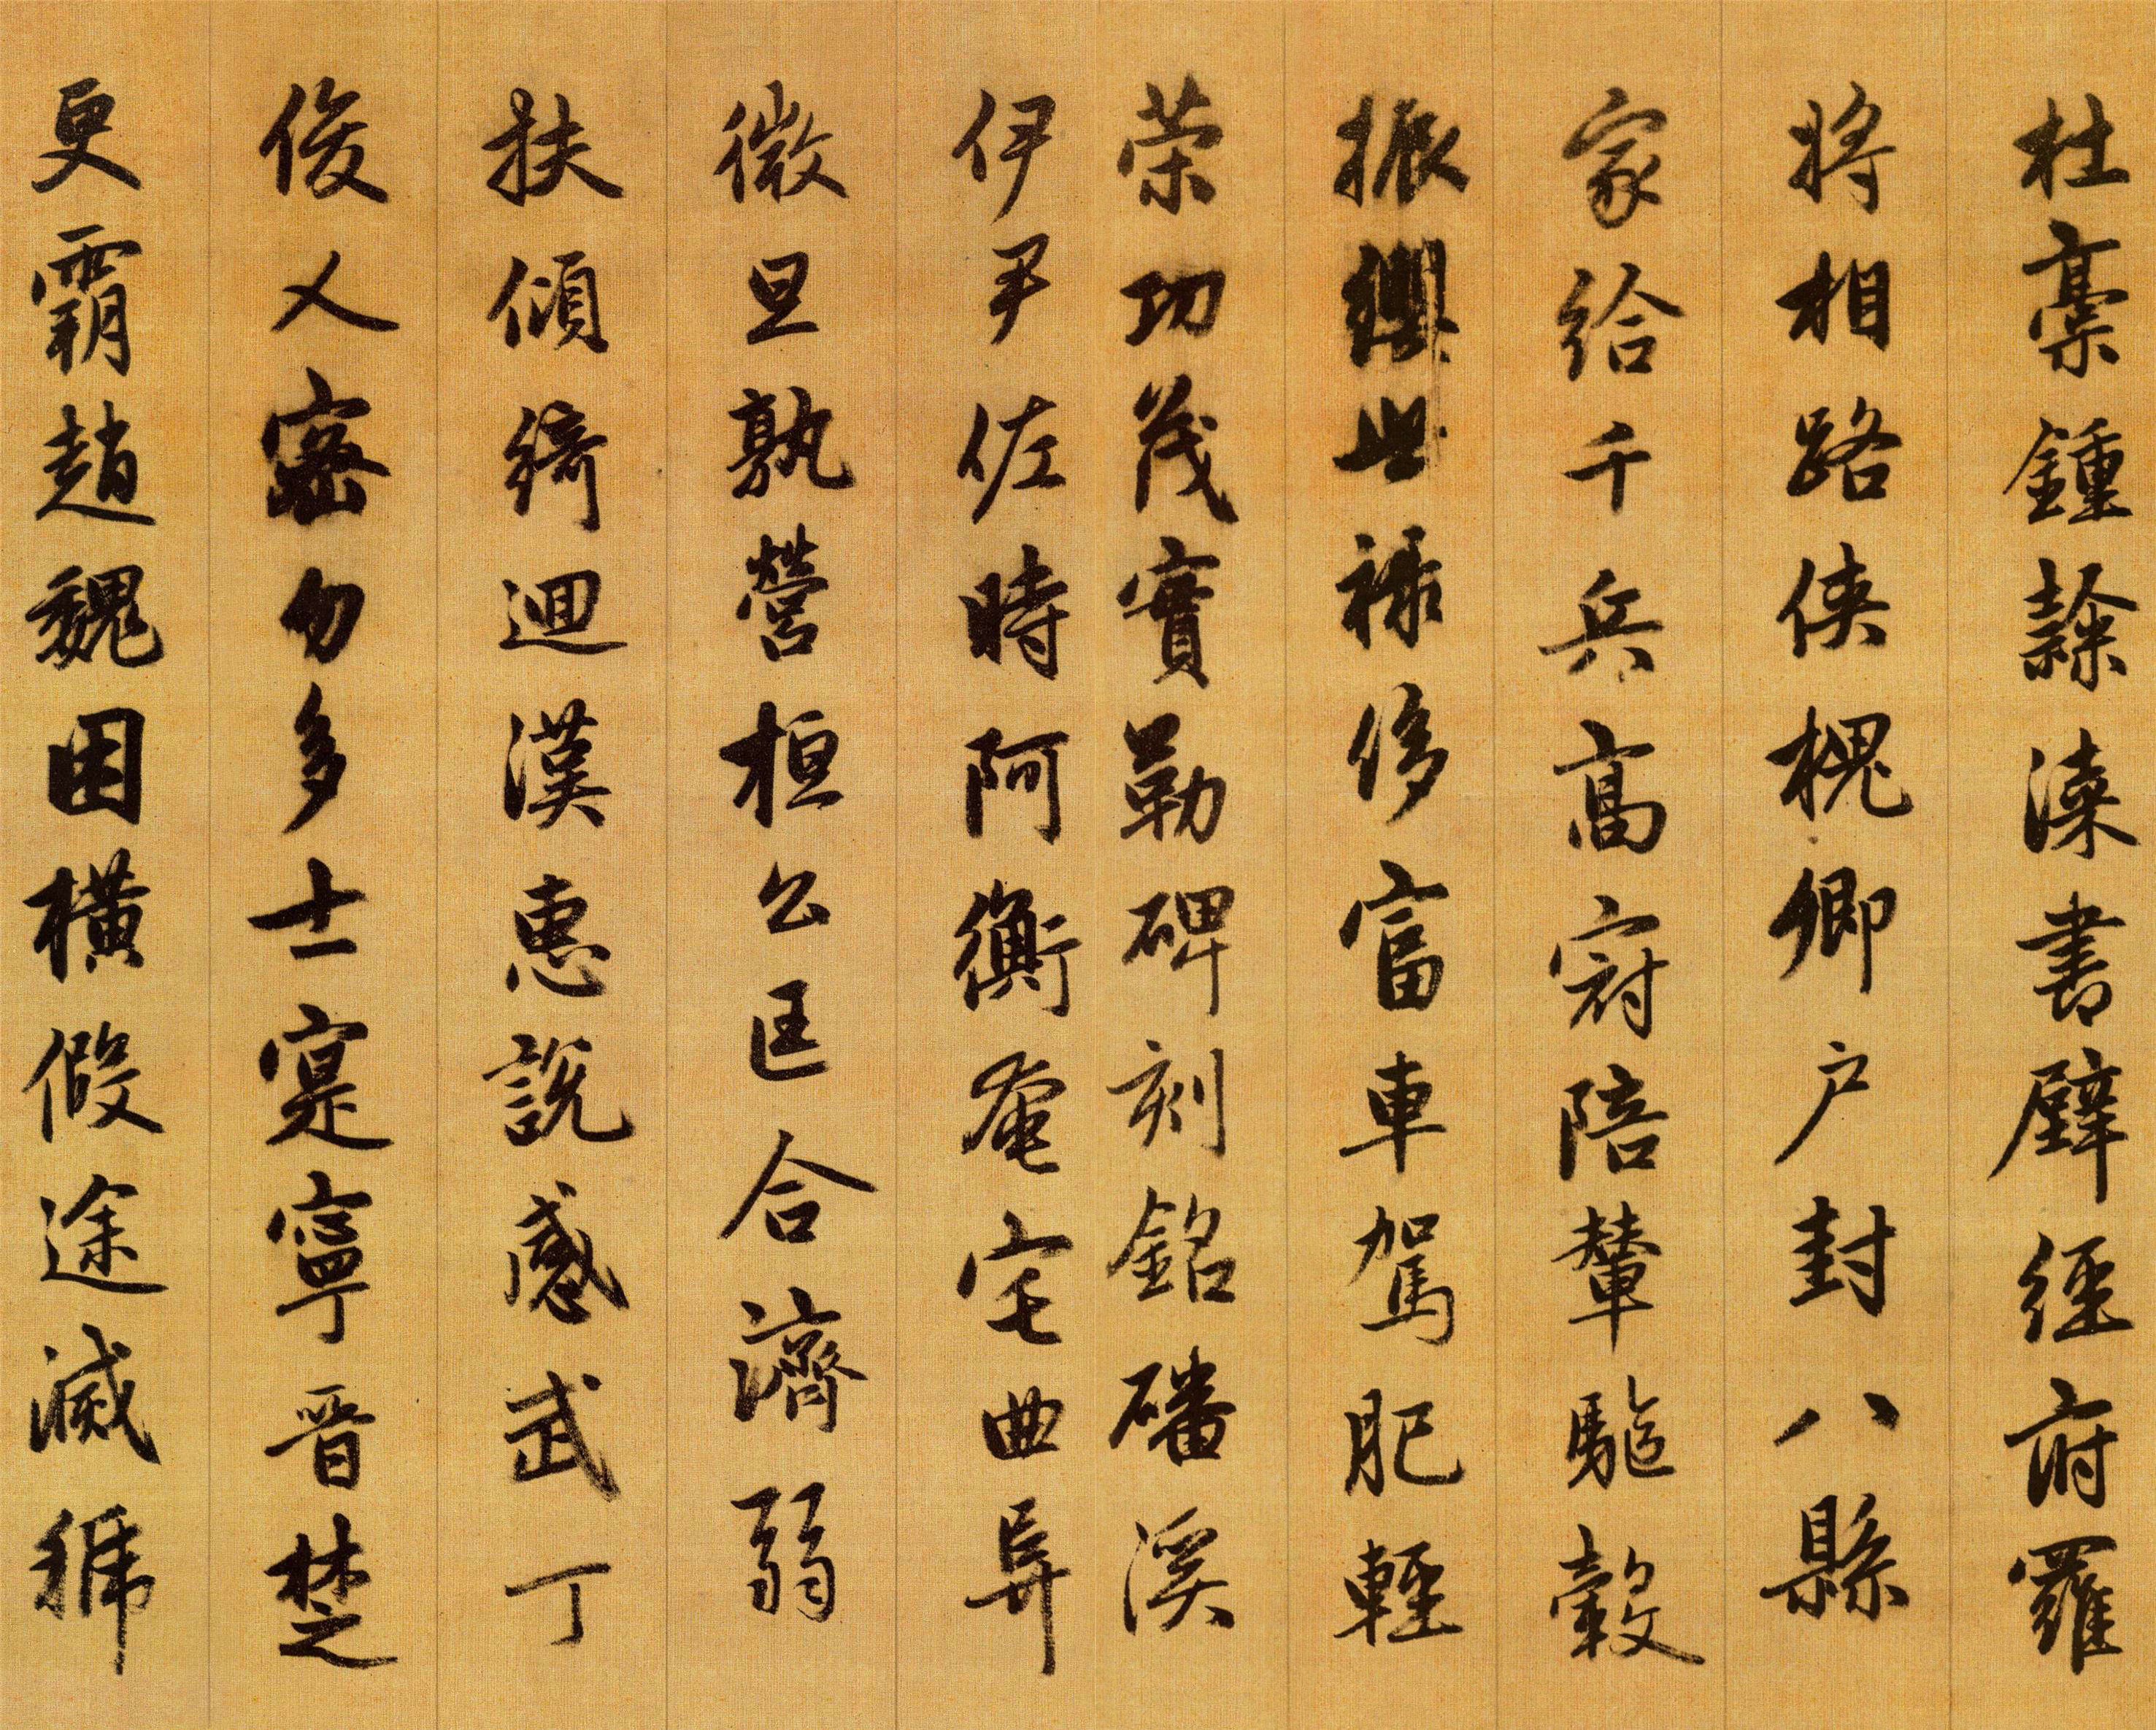 杜稾鍾隸漆書壁經府羅
將相路俠槐卿户封八縣
家給千兵高冠陪輦驅轂
振纓世祿侈富車駕肥輕
策功茂實勒碑刻銘磻溪
伊尹佐時阿衡奄宅曲阜
微旦孰營桓公匡合濟弱
扶傾綺迴漢惠說感武丁
俊乂密勿多士寔寧晉楚
更霸趙魏困橫假途滅虢